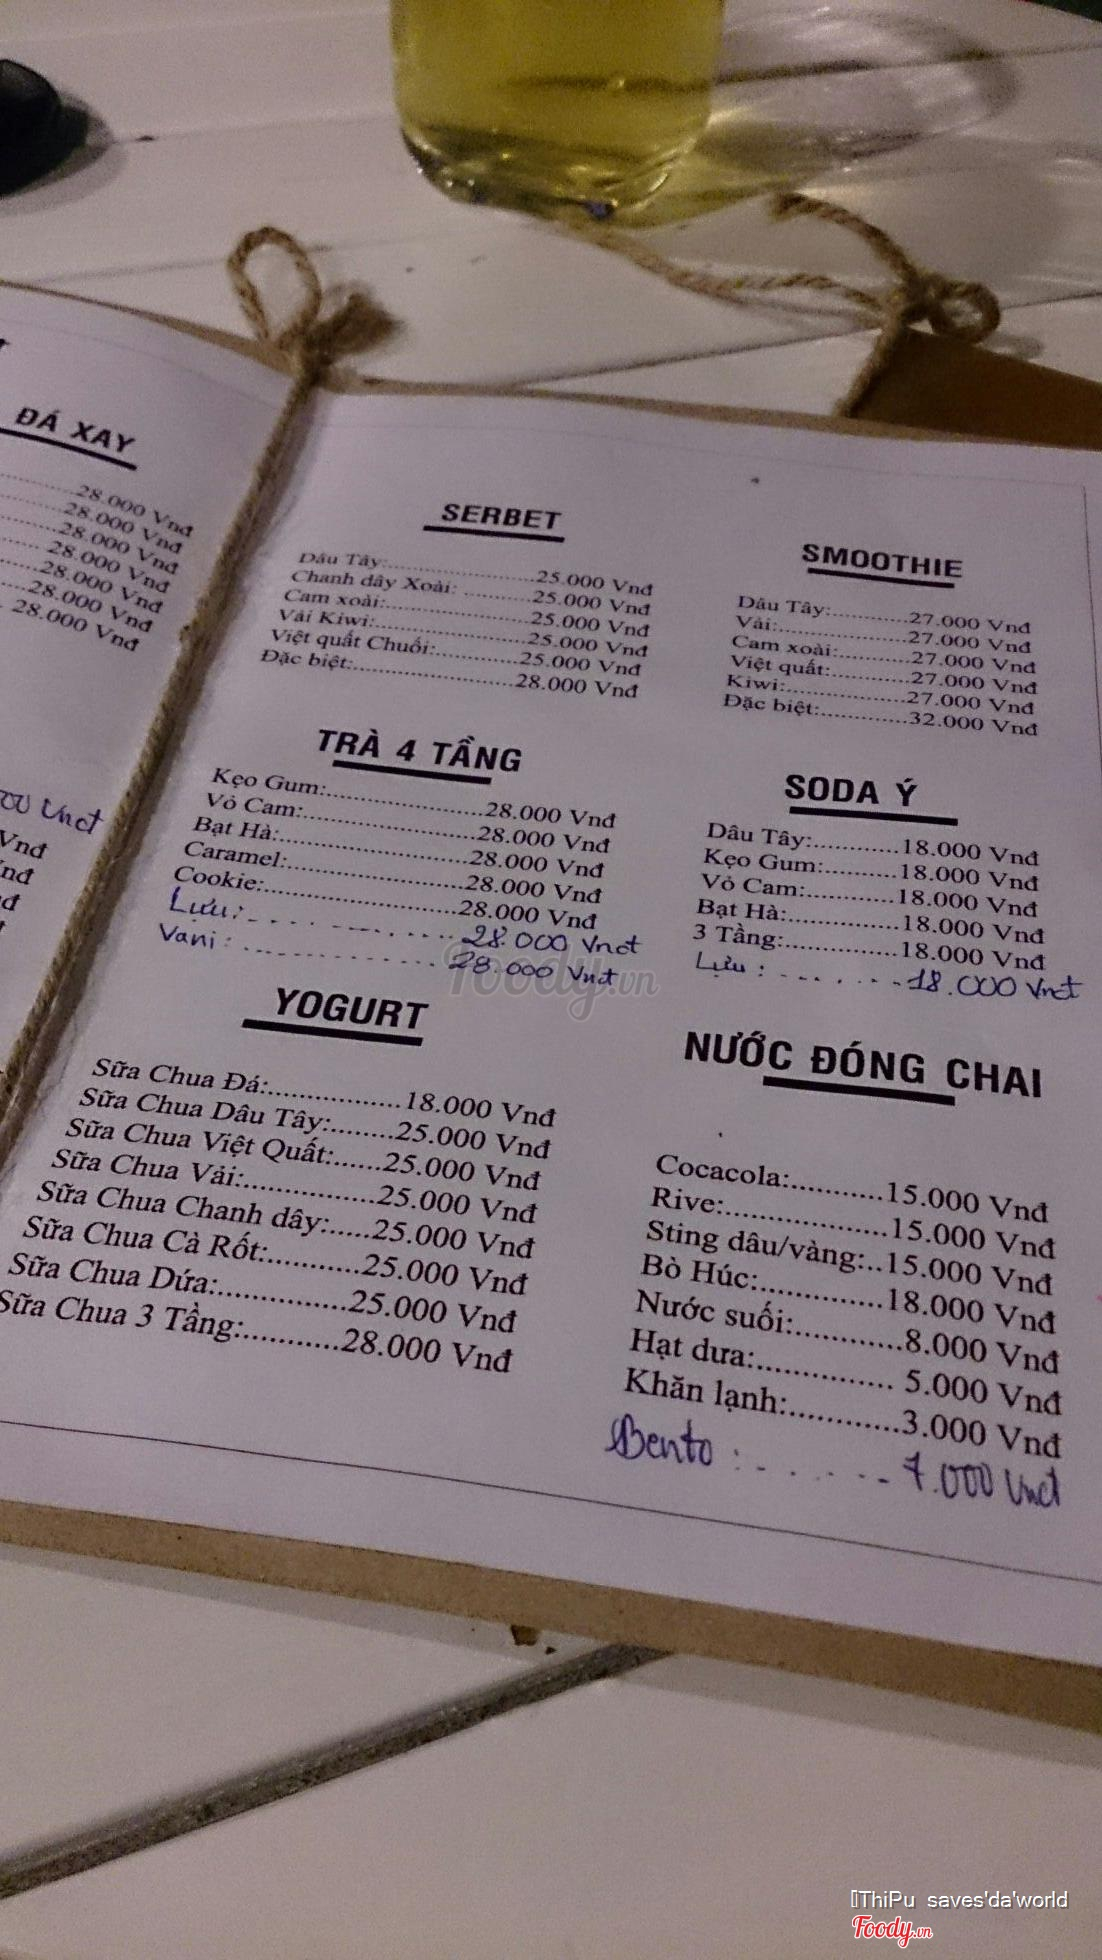 ĐÁ XAY
28.000 Vnđ
28.000 Vnđ
28.000 Vnđ
28.000 Vnđ
28.000 Vnđ
28.000 Vnđ
28.000 Vnđ
SERBET
Dâu Tây:..............25.000 Vnđ
Chanh dây Xoài: ..........25.000 Vnđ
Cam xoài:..............25.000 Vnđ
Vải Kiwi:..............25.000 Vnđ
Việt quất Chuối:..........25.000 Vnđ
Đặc biệt:..............28.000 Vnđ
SMOOTHIE
Dâu Tây:..........27.000 Vnđ
Vải:..............27.000 Vnđ
Cam xoài:..........27.000 Vnđ
Việt quất:..........27.000 Vnđ
Kiwi:..............27.000 Vnđ
Đặc biệt:..........32.000 Vnđ
TRÀ 4 TẦNG
Kẹo Gum:..............28.000 Vnđ
Vỏ Cam:..............28.000 Vnđ
Bạt Hà:..............28.000 Vnđ
Caramel:..............28.000 Vnđ
Cookie:..............28.000 Vnđ
Lựu: ........ 28.000 Vnđ
Vani: ........ 28.000 Vnđ
SODA Ý
Dâu Tây:..........18.000 Vnđ
Kẹo Gum:..........18.000 Vnđ
Vỏ Cam:..........18.000 Vnđ
Bạt Hà:..........18.000 Vnđ
3 Tầng:..........18.000 Vnđ
Lựu: ........ 18.000 Vnđ
YOGURT
Sữa Chua Đá:..............18.000 Vnđ
Sữa Chua Dâu Tây:........25.000 Vnđ
Sữa Chua Việt Quất:......25.000 Vnđ
Sữa Chua Vải:..............25.000 Vnđ
Sữa Chua Chanh dây:.....25.000 Vnđ
Sữa Chua Cà Rốt:...........25.000 Vnđ
Sữa Chua Dứa:..............25.000 Vnđ
Sữa Chua 3 Tầng:...........28.000 Vnđ
NƯỚC ĐÓNG CHAI
Cocacola:...........15.000 Vnđ
Rive:..............15.000 Vnđ
Sting dâu/vàng:..15.000 Vnđ
Bò Húc:.............18.000 Vnđ
Nước suối:............8.000 Vnđ
Hạt dưa:.............. 5.000 Vnđ
Khăn lạnh:............3.000 Vnđ
Bento: ........ 7.000 Vnđ
Foody.vn
ThiPu saves'da'world
Foody.vn